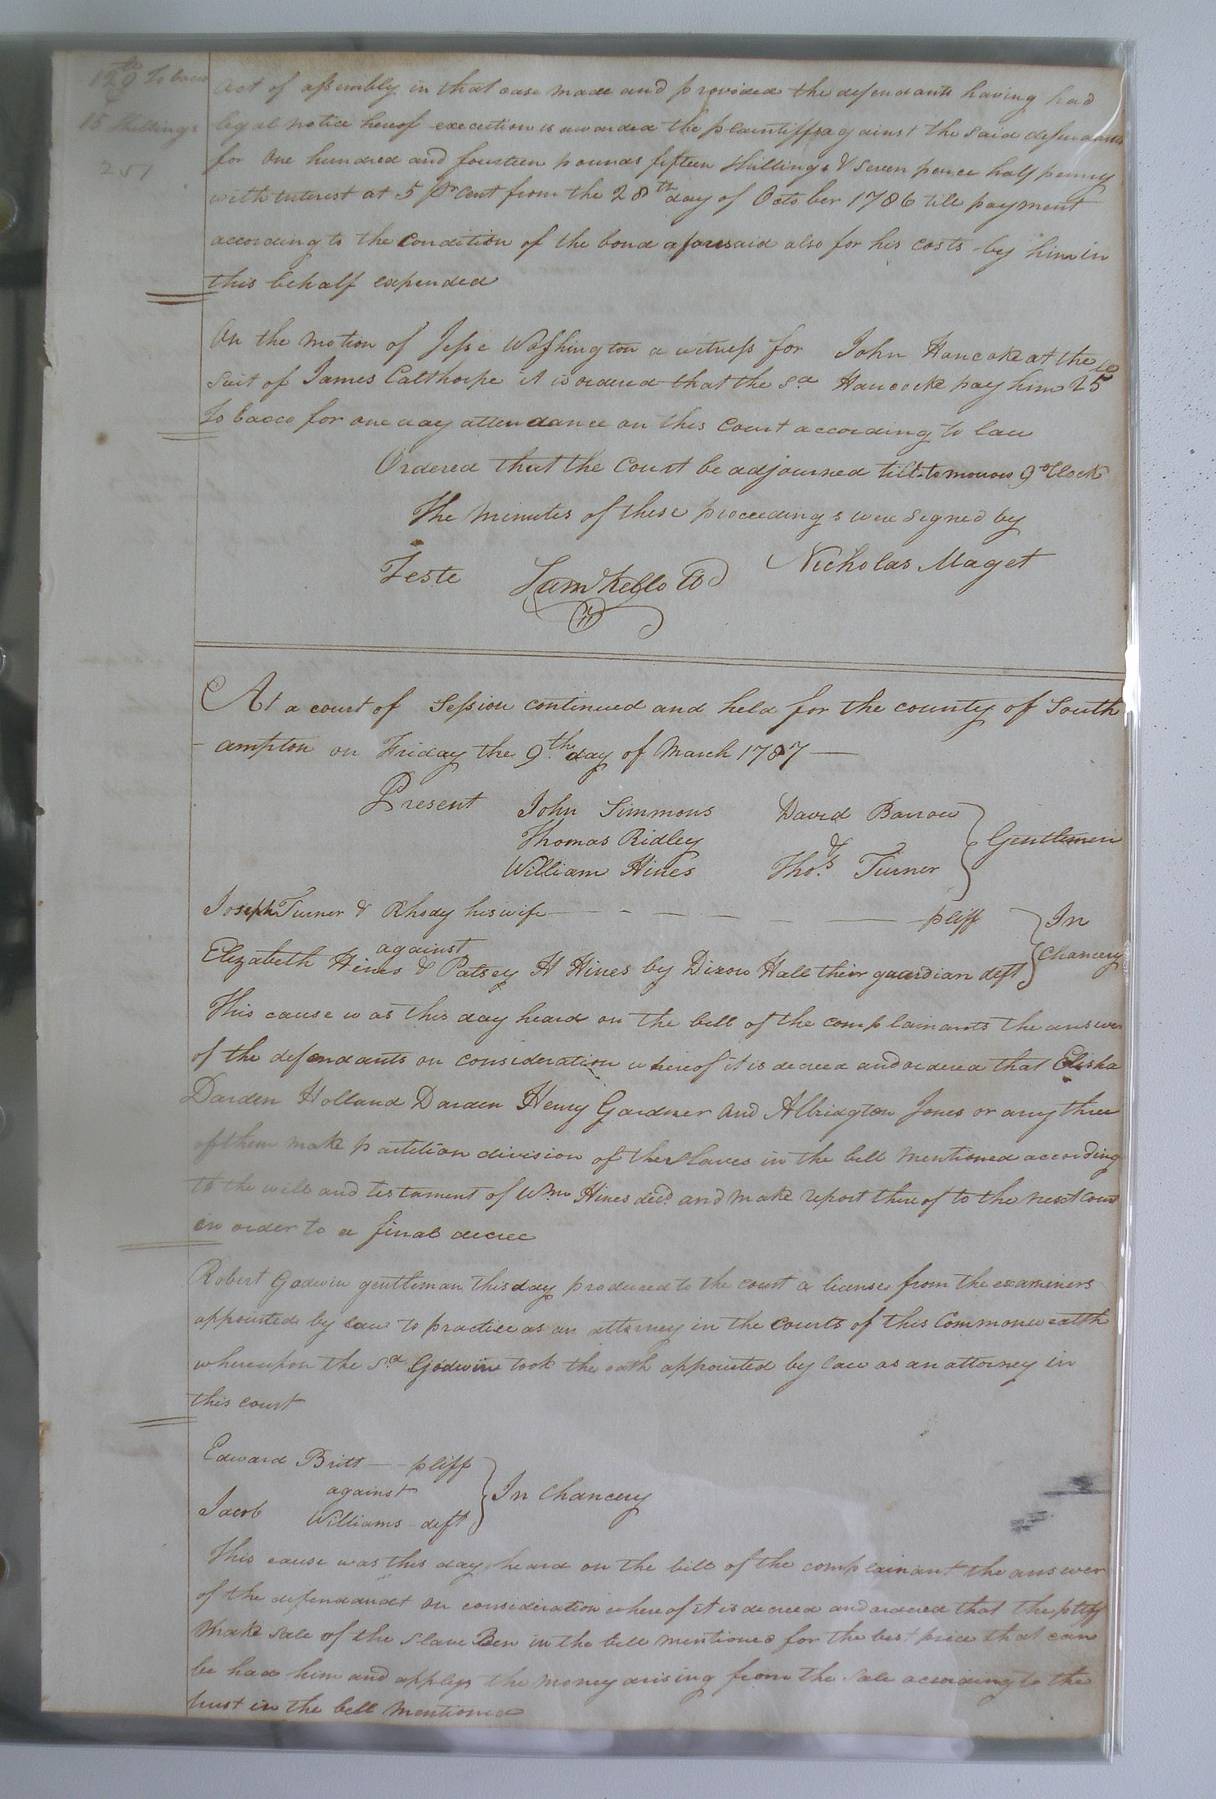 129 Tobacco
15 Shillings
251
act of assembly in that case made and provided the defendants having had
legal notice hereof execution is awarded the plaintiffs against the said defendants
for One hundred and fourteen pounds fifteen shillings & seven pence half penny
with interest at 5 Pr Cent from the 28th day of October 1786 till payment
according to the condition of the bond aforesaid also for his costs by him in
this behalf expended
On the motion of Jesse Washington a witness for John Hancoke at the
Suit of James Calthorpe it is ordered that the sd Hancocke pay him 25 lb
Tobacco for one day attendance on this Court according to law
Ordered that the Court be adjourned till tomorrow 9 oClock
The minutes of these proceedings were signed by
Nicholas Maget
Teste Sam Kello
At a court of Session continued and held for the county of South
-ampton on Friday the 9th day of March 1787
Present John Simmons David Barrow
Thomas Ridley & Gentlemen
William Hines Thos. Turner
Joseph Turner & Rhody his wife pliff In
against
Elizabeth Hines & Patsey H Hines by Dixon Hall their guardian deft Chancery
This cause was this day heard on the bill of the complainants the answer
of the defendants on consideration whereof it is decreed and ordered that Elisha
Darden Holland Darden Henry Gardner and Albridgton Jones or any three
of them make partition division of the slaves in the bill mentioned according
to the will and testament of Wm Hines decd. and make report thereof to the next court
in order to a final decree
Robert Godwin gentleman this day produced to the court a license from the examiners
appointed by law to practice as an attorney in the courts of this Commonwealth
whereupon the sd Godwin took the oath appointed by law as an attorney in
this court
Edward Britt pliff
against In Chancery
Jacob Williams deft
This cause was this day heard on the bill of the complainant the answer
of the defendandt on consideration whereof it is decreed and ordered that the pltff
make sale of the slave Ben in the bill mentioned for the best price that can
be had him and apply the money arising from the sale according to the
trust in the bill mentioned